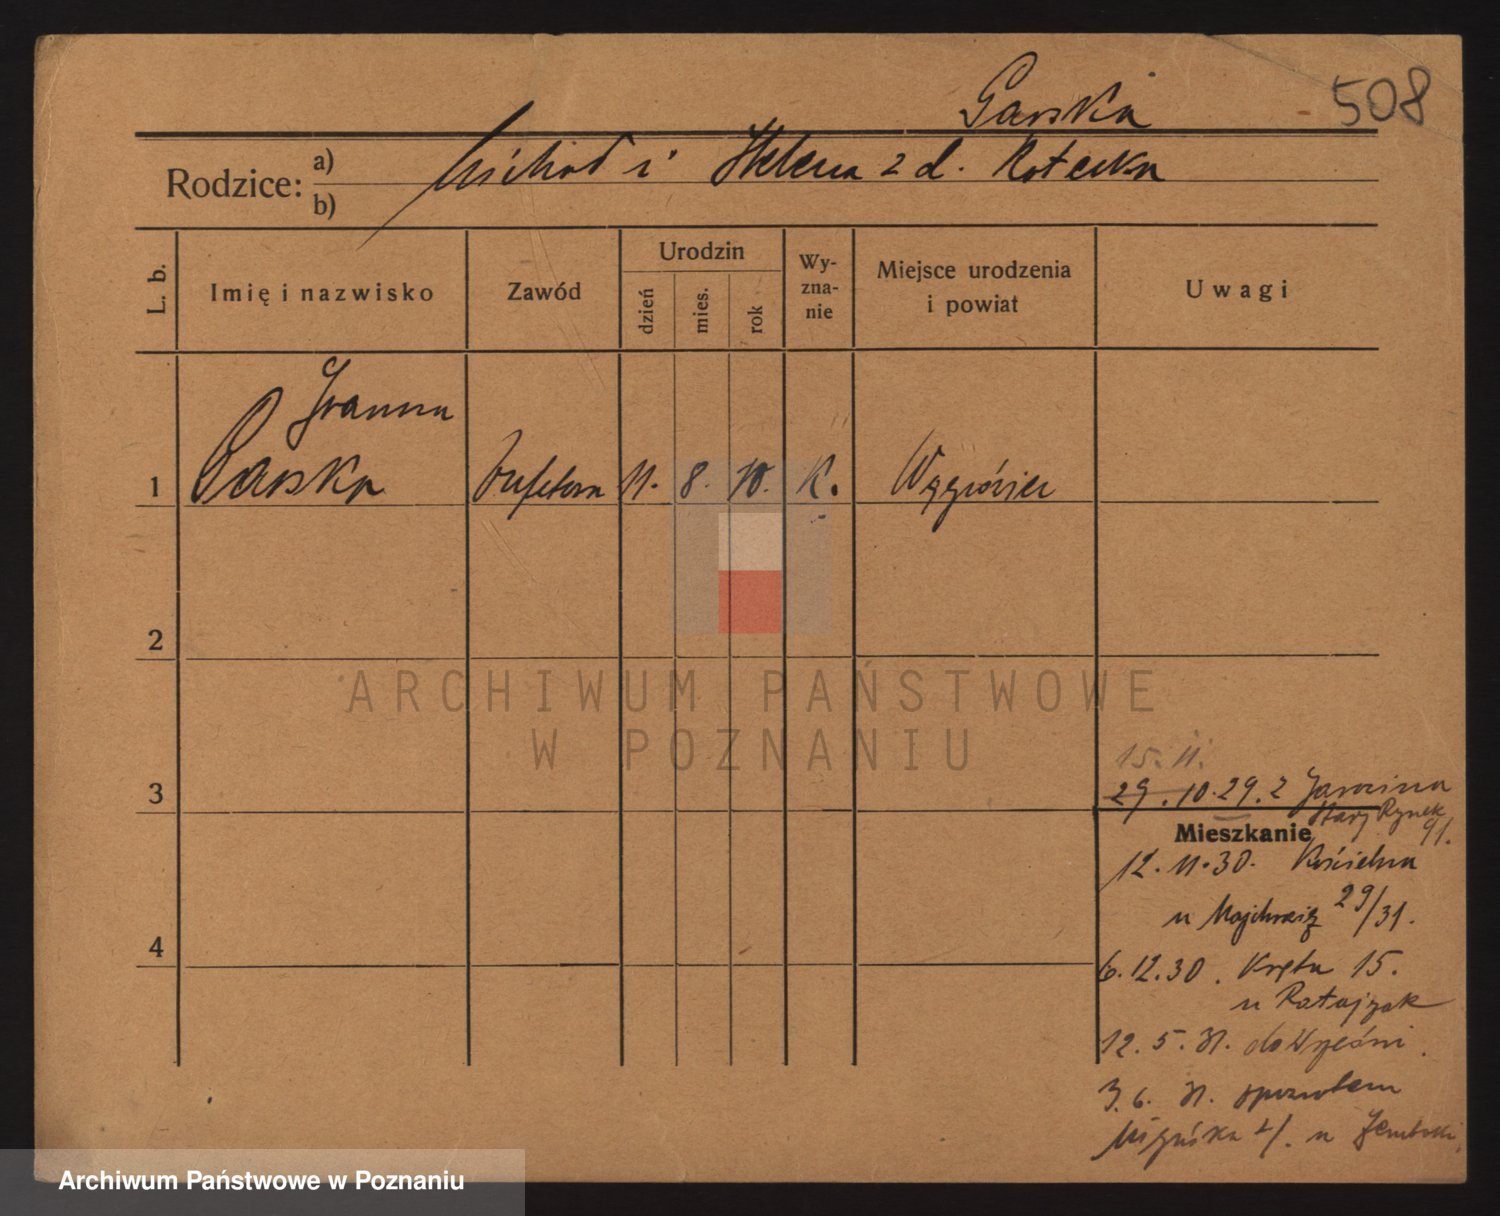 Garska
508
Rodzice: a) Michał i Helena z d. Rotecka
b)
L. b.
Imię i nazwisko
Zawód
Urodzin
dzień
mies.
rok
Wy-
zna-
nie
Miejsce urodzenia
i powiat
Uwagi
Joanna
1 Garska bufetowa 11. 8. 10. K.
2
ARCHIWUM PAŃSTWOWE
W POZNANIU
15. 11.
3 29.10.29. z Jarocina
Stary Rynek
91.
Mieszkanie
12.11.30. Kościelna
u 29/31.
4
6.12.30. Kręta 15.
u Ratajczak
12. 5. 31. do Wrześni
3. 6. 31. spowrotem
u
Archiwum Państwowe w Poznaniu